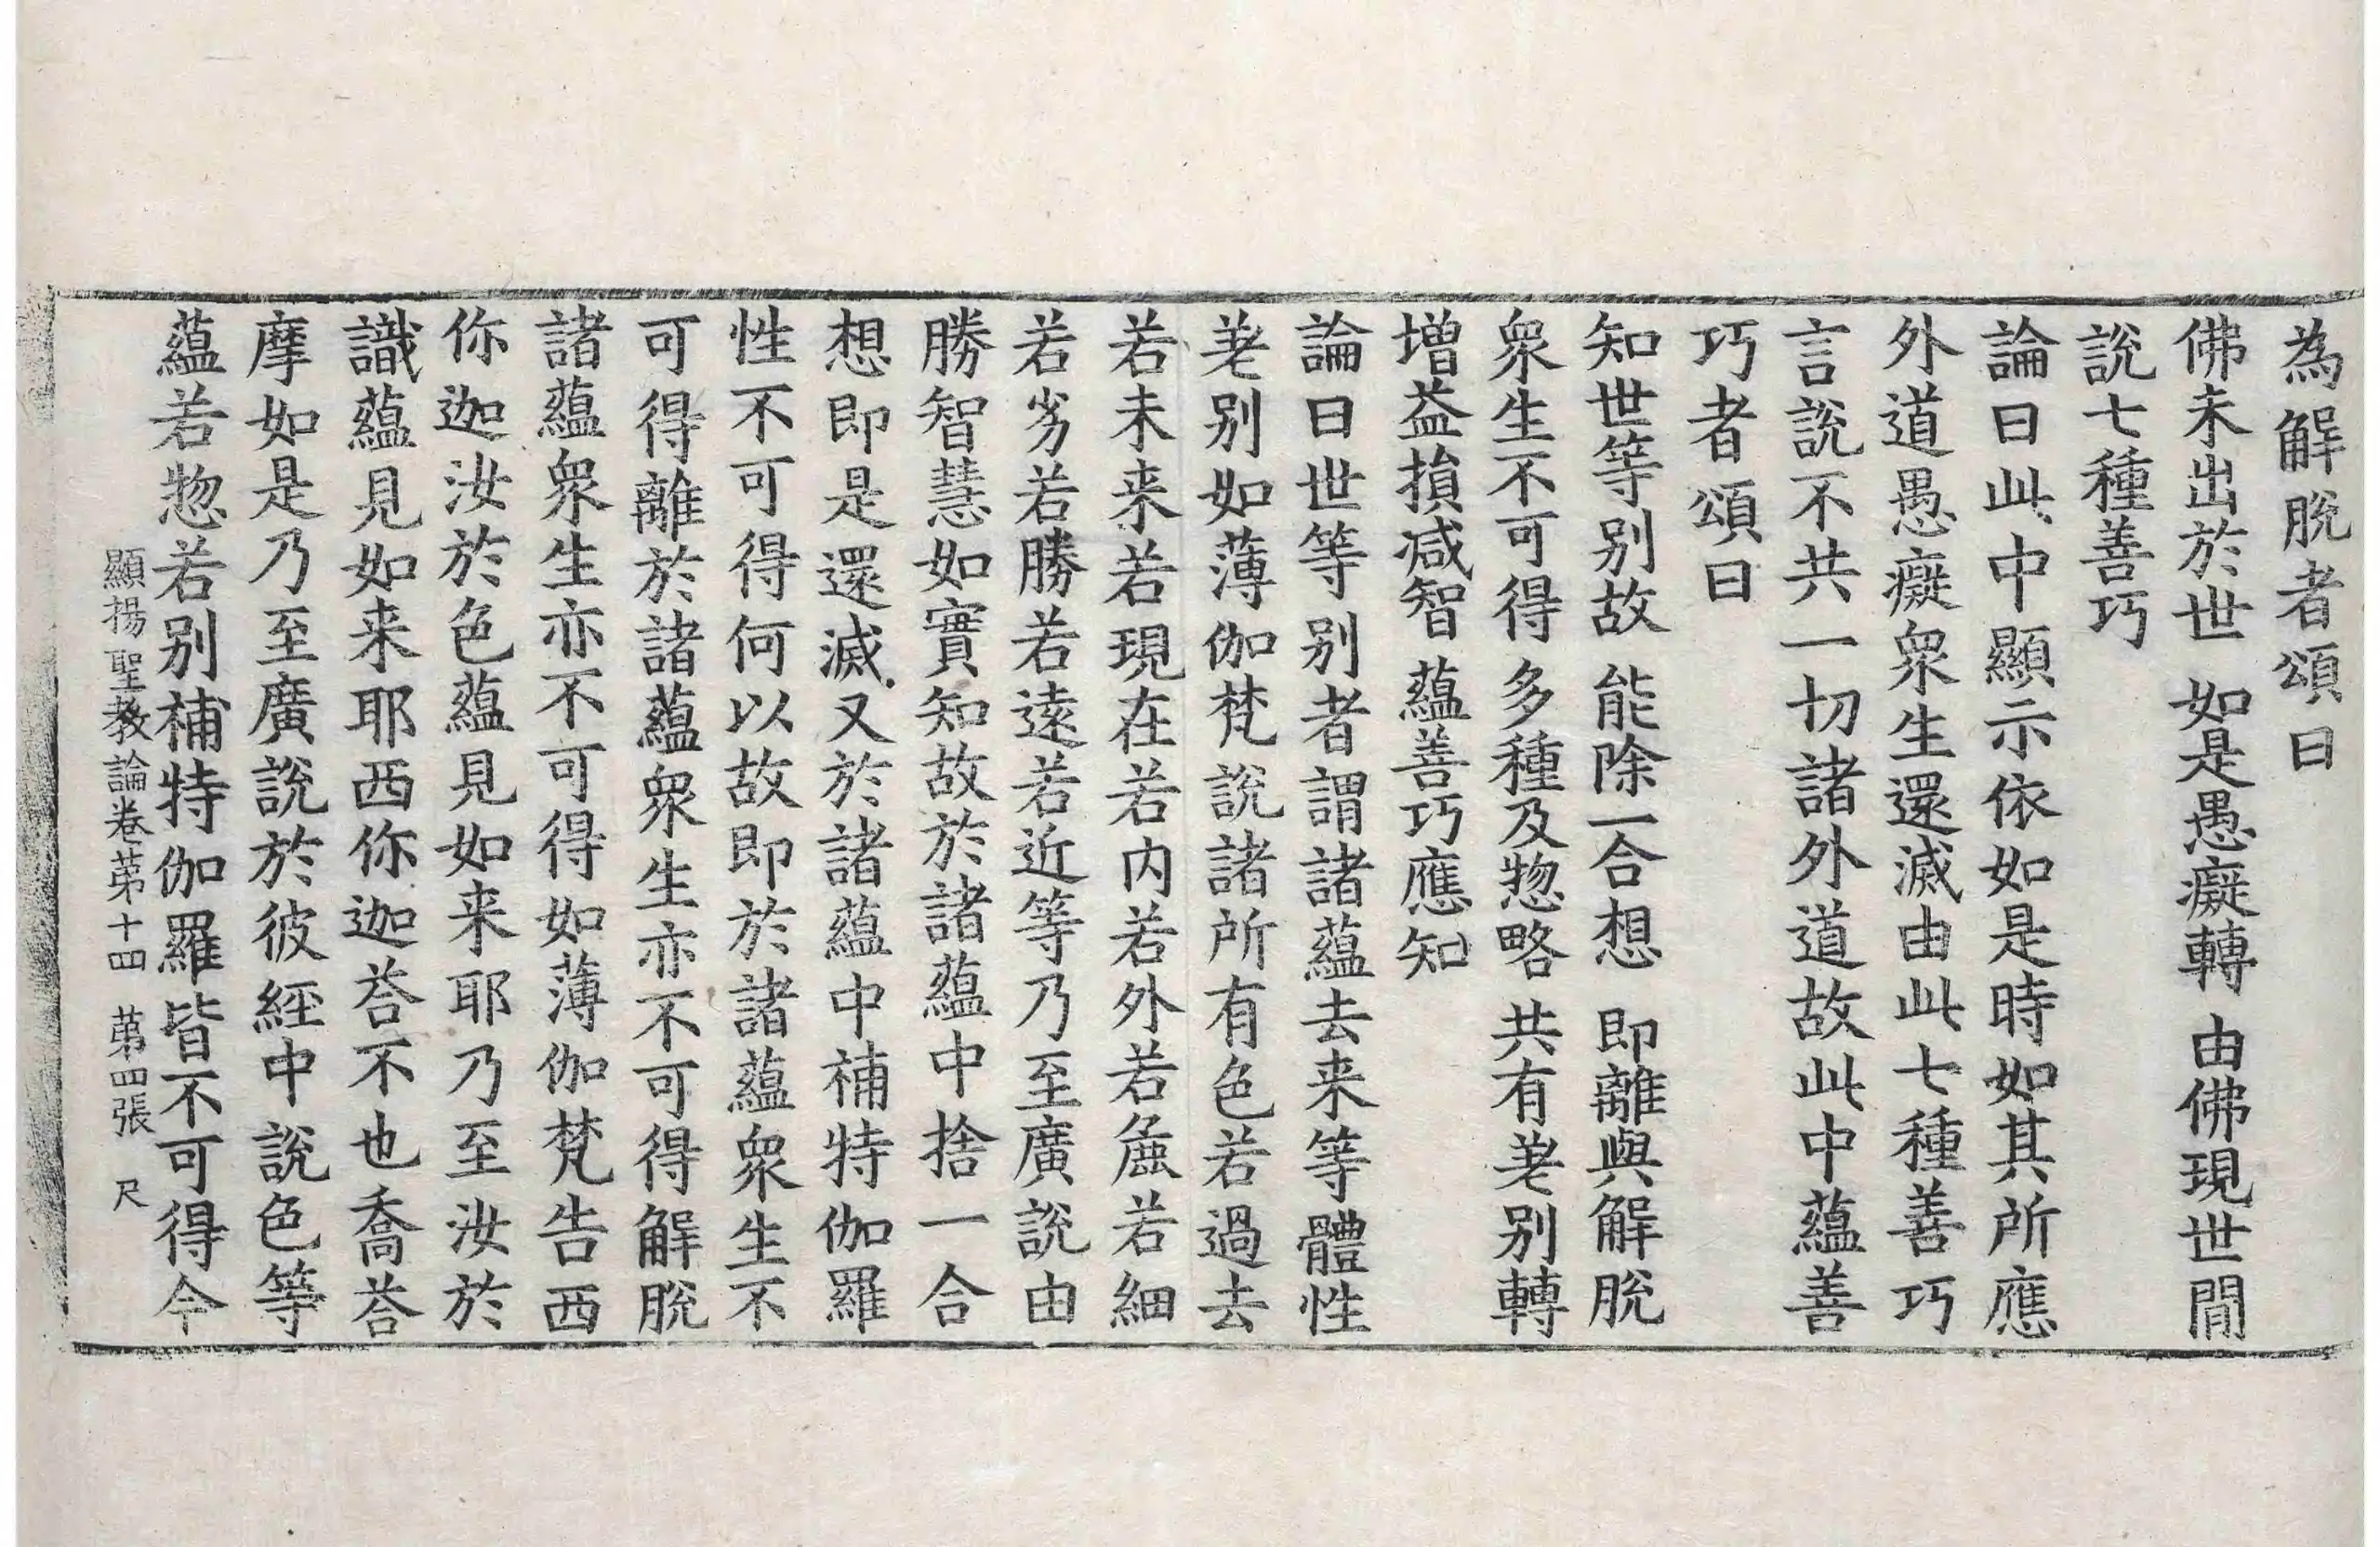 為解脫者頌曰
佛未出於世 如是愚癡轉 由佛現世間
說七種善巧
論曰此中顯示依如是時如其所應
外道愚癡衆生還滅由此七種善巧
言說不共一切諸外道故此中蘊善
巧者頌曰
知世等别故 能除一合想 即離與解脫
衆生不可得 多種及惣略 共有差别轉
增益損減智 蘊善巧應知
論曰世等别者謂諸蘊去来等體性
差别如薄伽梵說諸所有色若過去
若未来若現在若内若外若麁若細
若劣若勝若遠若近等乃至廣說由
勝智慧如實知故於諸蘊中捨一合
想即是還滅又於諸蘊中補特伽羅
性不可得何以故即於諸蘊衆生不
可得離於諸蘊衆生亦不可得解脫
諸蘊衆生亦不可得如薄伽梵告西
你迦汝於色蘊見如来耶乃至汝於
識蘊見如来耶西你迦荅不也喬荅
摩如是乃至廣說於彼經中說色等
蘊若惣若别補特伽羅皆不可得今
顯揚聖教論卷苐十四 苐四張 尺